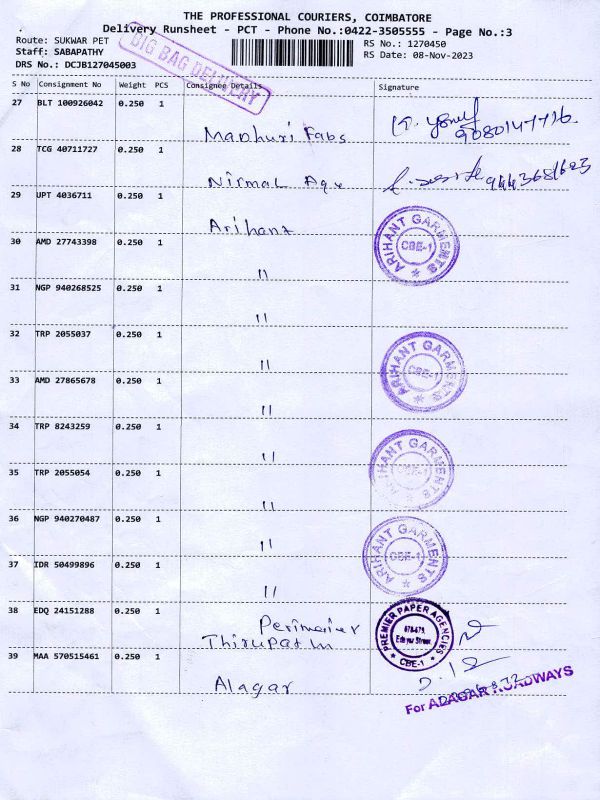 THE PROFESSIONAL COURIERS, COIMBATORE
Delivery Runsheet - PCT - Phone No.:0422-3505555 - Page No.:3
Route: SUKWAR PET
Staff: SABAPATHY
DRS No.: DCJB127045003
BIG BAG DELIVERY
RS No.: 1270450
RS Date: 08-Nov-2023
S No Consignment No Weight PCS Consignee Details Signature
27 BLT 100926042 0.250 1
Madhuri Fabs 9080147716.
28 TCG 40711727 0.250 1
Nirmal Age 9443681623
29 UPT 4036711 0.250 1
Arihant
ARIHANT GARMENTS CBE-1
30 AMD 27743398 0.250 1
"
31 NGP 940268525 0.250 1
"
32 TRP 2055037 0.250 1
"
ARIHANT GARMENTS CBE-1
33 AMD 27865678 0.250 1
"
34 TRP 8243259 0.250 1
"
ARIHANT GARMENTS CBE-1
35 TRP 2055054 0.250 1
"
36 NGP 940270487 0.250 1
"
ARIHANT GARMENTS CBE-1
37 IDR 50499896 0.250 1
"
38 EDQ 24151288 0.250 1
Perimaier
Thirupatm
PREMIER PAPER AGENCIES
CBE-1
39 MAA 570515461 0.250 1
Alagar
For ADAGAR ROADWAYS